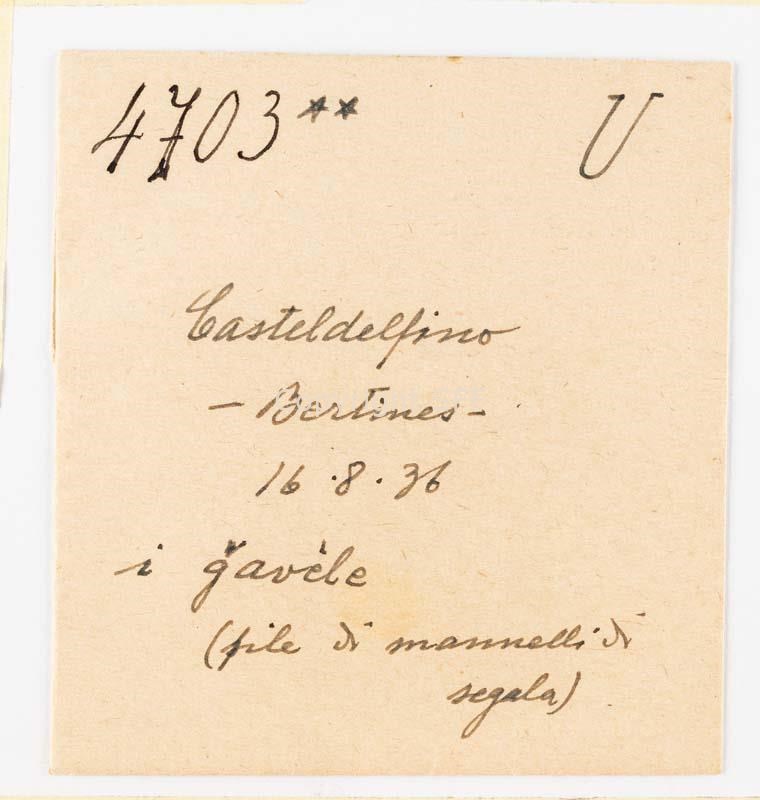 4703** U
Casteldelfino
- Bertines -
16.8.36
i ǧavèle
(file di mannelli di
segala)